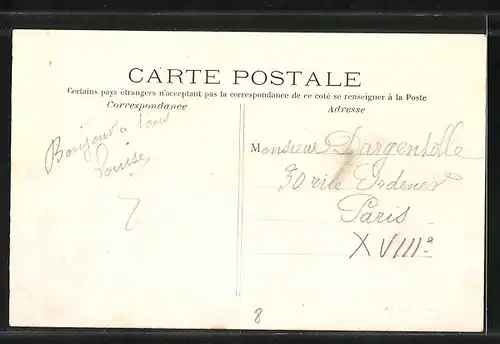 CARTE POSTALE
Certains pays étrangers n'acceptant pas la correspondance de ce coté se renseigner à la Poste
Correspondance
Adresse
Bonjour a tous
Louise
Monsieur Dargentolle
30 rue
Paris
XVIIIe
8